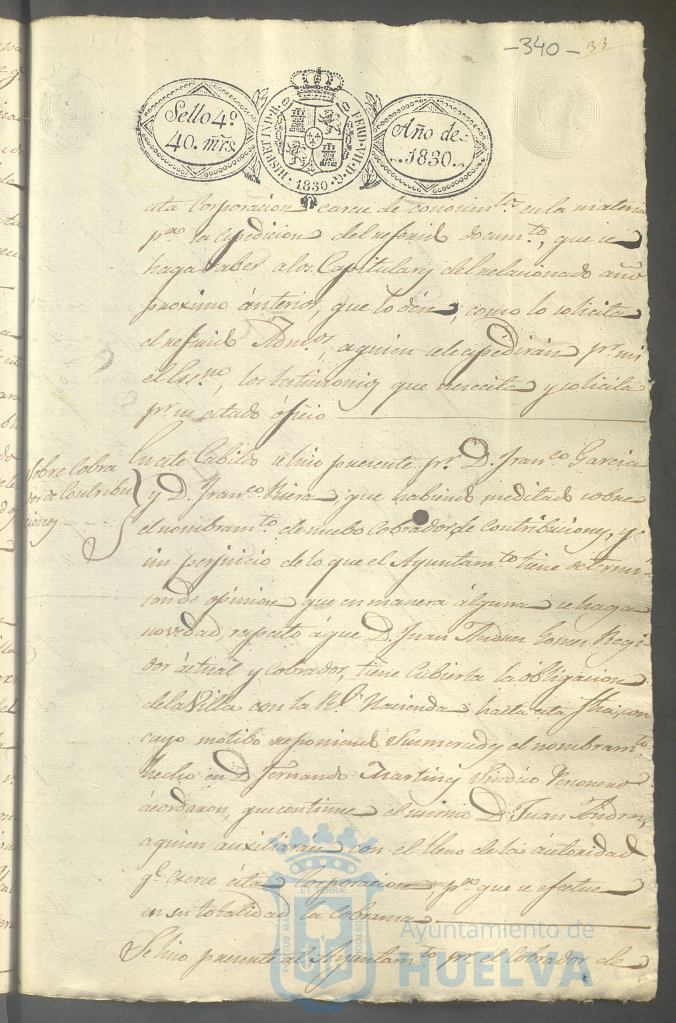 -340- 33
Sello 4º
40. mrs.
HISPET IND. R. FERD. VII. D. G.
1830
Año de
1830.
esta Corporacion carece de conocimto en la materia
pa la espedicion del referido documto, que se
haga saber a los Capitulares del relacionado año
proximo ánterior, que lo den, como lo solicita
el referido Admor, a quien se le espedirán pr mi
el Essno, los testimonios que necesita y solicita
pr su citado óficio
Sobre Cobra
dor de Contribu
ciones
En este Cabildo se hizo presente pr D. Franco Garcia
y D. Franco Riera que habiendo meditado sobre
el nombramto de nuebo Cobrador de Contribuciones, y
sin perjuicio de lo que el Ayuntamto tiene
son de opinion que en manera álguna se haga
novedad, respecto á que D. Juan Andres Gomez Regi
dor áctual y Cobrador, tiene Cubierta la óbligacion
de la Villa con la Rl Hacienda hasta esta fha, con
cuyo motibo reponiendo Sus mercedes el nombramto
hecho en D. Fernando Martines Sindico Personero
ácordaron, que continue el mismo D. Juan Andres,
a quien auxiliaran con el lleno de la áutoridad
qe exerce ésta Corporacion pa que se efectue
en su totalidad la Cobranza
Se hizo presente al Ayuntamto pr el Cobrador de
Ayuntamiento de
HUELVA